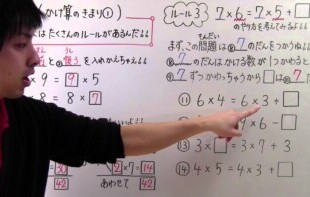 かけ算のきまり①
はたくさんのルールがあるんだ↓↓
を入れかえちゃえ↓↓
9 = 9 × 5
8 = 8 × 7
30
42
= 14
= 30
あわせて 42
ルール3
7 × 6 = 7 × 5 + □
のやり方を考えてみよう↓↓
まず、この問題は 7 のだんをつかうね↓↓
7 のだんはかける数が
7 ずつ
は 7
⑪ 6 × 4 = 6 × 3 + □
9 × 6 − □
⑬ 3 × □ = 3 × 7 + 3
⑭ 4 × 5 = 4 × 3 + □